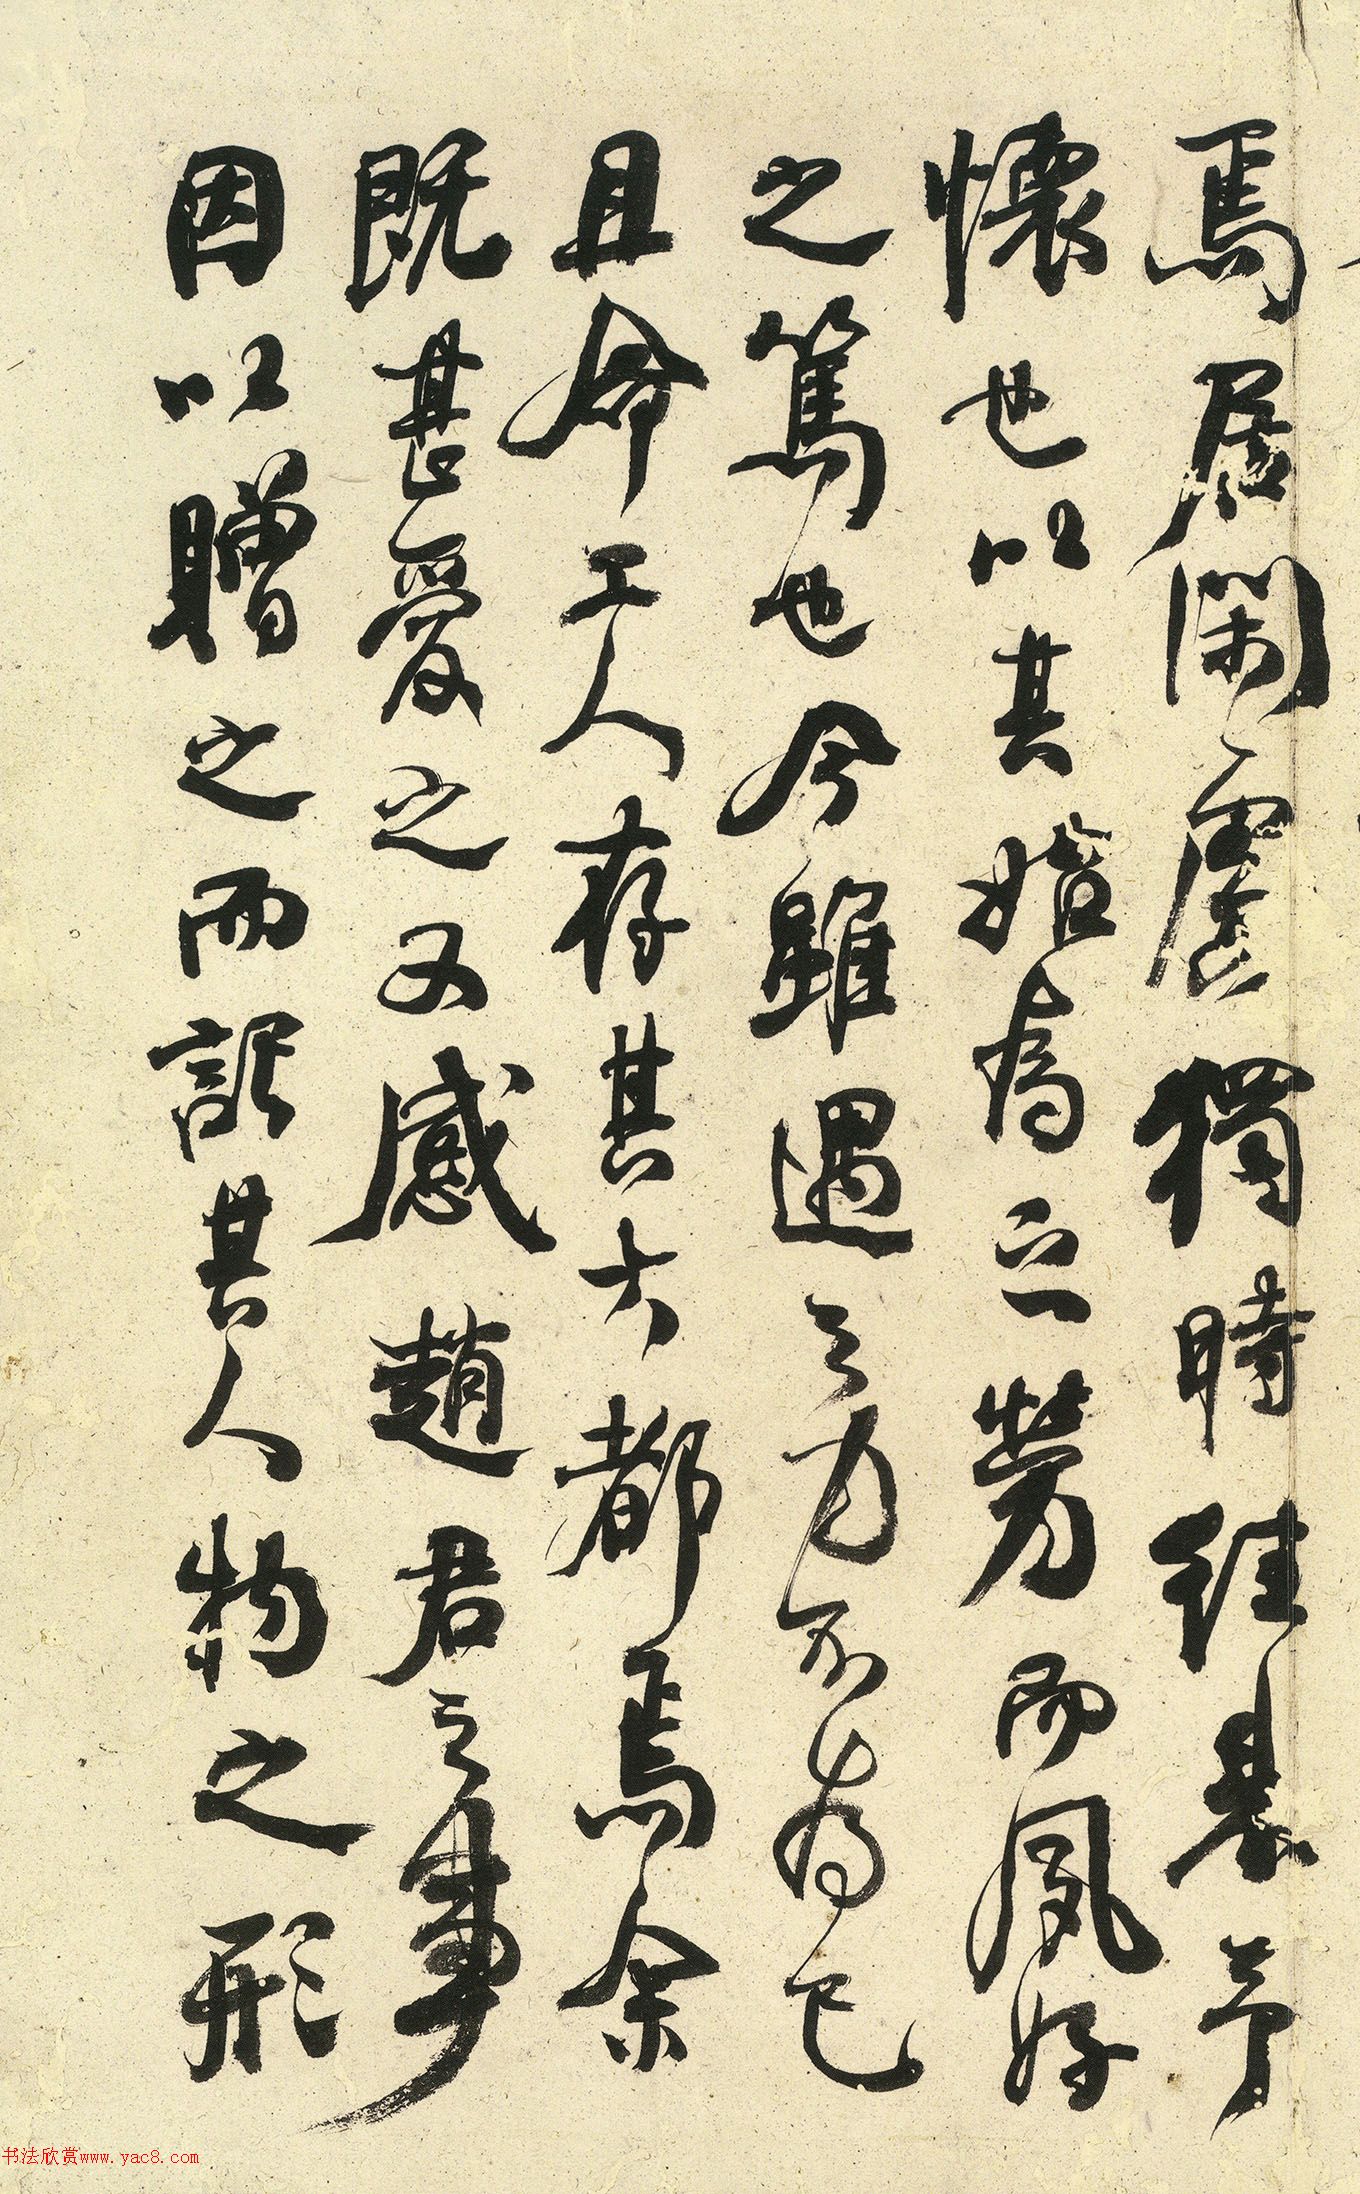 焉居閑處獨時往來予
懷也以其始為之勞而夙好
之篤也今雖遇之力不為已
且命工人存其大都焉余
既甚愛之又感趙君之事
因以贈之而記其人物之形
书法欣赏www.yac8.com